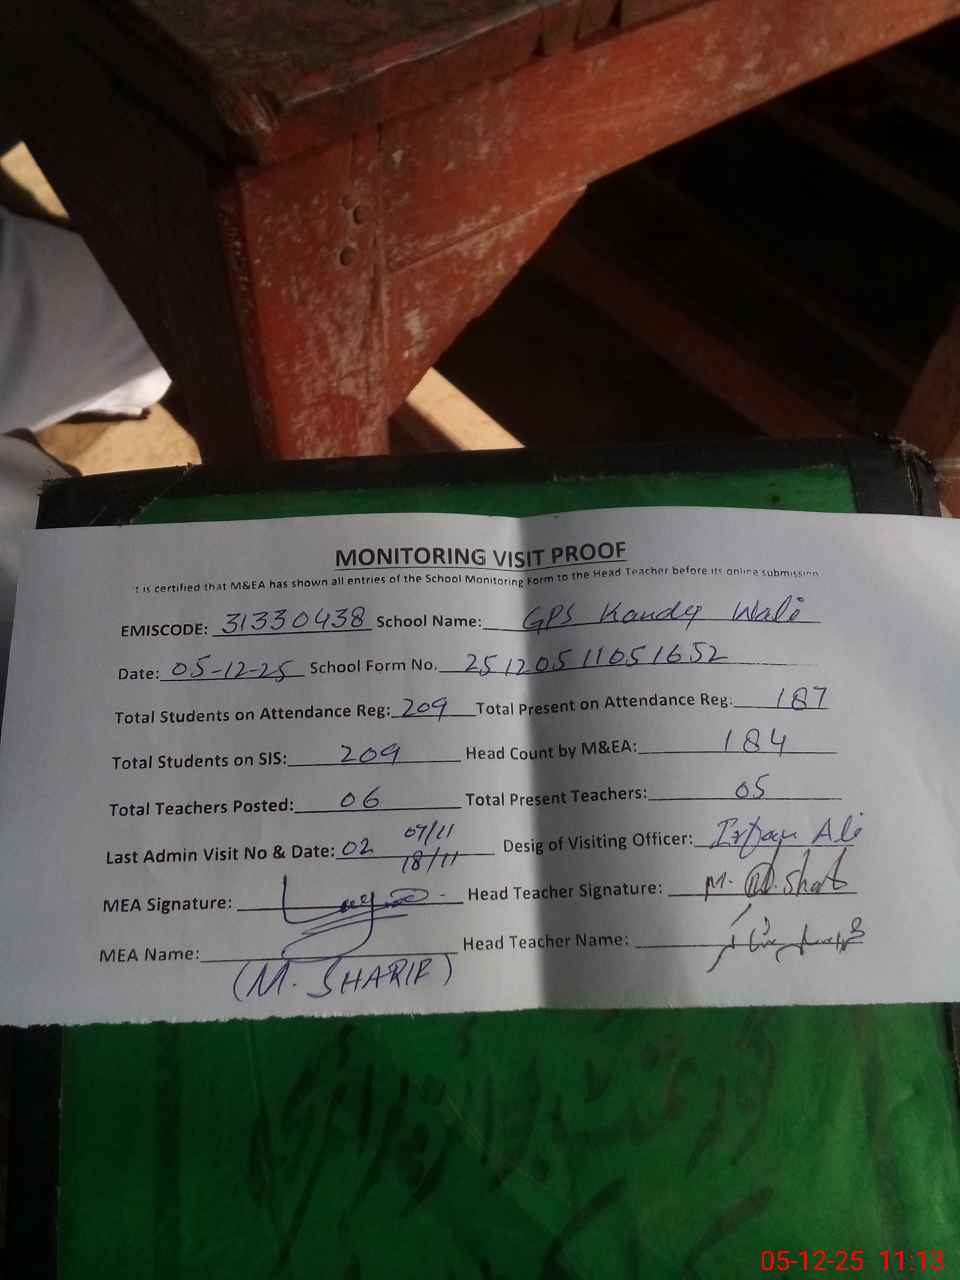 MONITORING VISIT PROOF
It is certified that M&EA has shown all entries of the School Monitoring Form to the Head Teacher before its online submission
EMISCODE: 31330438 School Name: GPS Kandey Wali
Date: 05-12-25 School Form No. 2512051051652
Total Students on Attendance Reg: 209 Total Present on Attendance Reg: 187
Total Students on SIS: 209 Head Count by M&EA: 184
Total Teachers Posted: 06 Total Present Teachers: 05
Last Admin Visit No & Date: 02 07/11 18/11 Desig of Visiting Officer: Irfan Ali
MEA Signature: Head Teacher Signature: M.
MEA Name: Head Teacher Name:
(M. SHARIF)
05-12-25 11:13